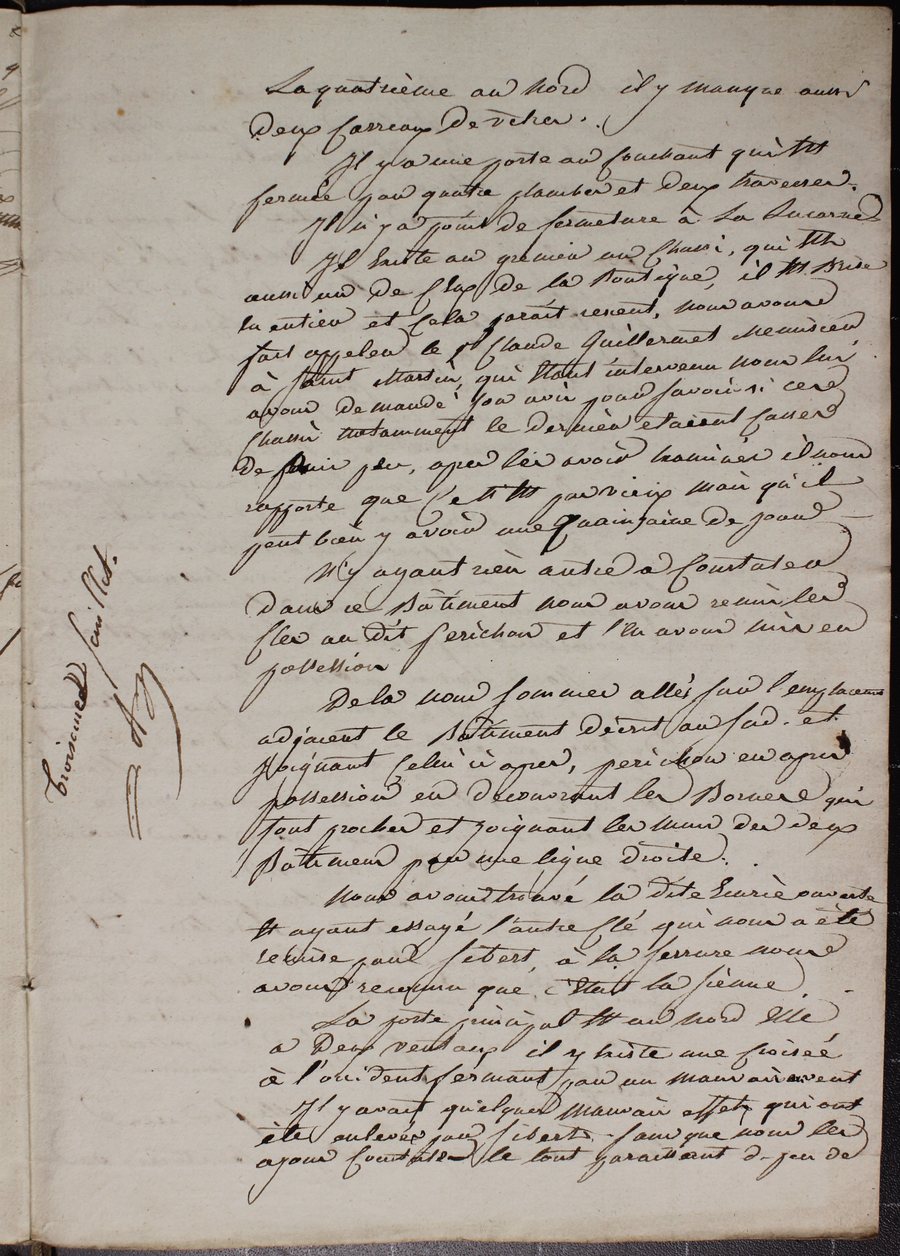 La quatrième au nord il y manque aussi
deux carreaux de vitres.
Il y a une porte au couchant qui est
fermée par quatre planches et deux traverses.
Il n'y a point de fermeture à la Lucarne
Il existe au grenier un chassi, qui est
aussi un de ceux de la Boutique, il est Brisé
en entier et cela parait resent, nous avons
fait appeler le Sr Claude Guillermet Menuisier
à Saint Martin, qui étant intervenu nous lui
avons demandé son avis pour savoir si ces
chassis notamment le dernier etaient cassés
depuis peu, apres les avoir examinés il nous
rapporte que c'est pas vieux mais qu'il
peut bien y avoir une quainzaine de jours
N'y ayant rien autre a constater
dans ce Bâtiment nous avons remis les
cles au dit Perichon et l'en avons mis en
possession
De la nous sommes allés sur l'emplacement
adjacent le Bâtiment décrit au sud et
joignant celui ci apres, perichon en a pris
possession en decouvrant les Bornes qui
sont proches et joignant les murs des deux
Bâtiments par une ligne droite.
Nous avons trouvé la dite Ecurie ouverte
et ayant essayé l'autre clé qui nous a été
remise par Sibert à la serrure nous
avons reconnu que c'était la sienne
La porte principal est au nord Elle
a deux ventaux il y existe une croisée
à l'occident fermant par un mauvais avent
Il y avait quelques mauvais effets qui ont
été enlevés par Sibert sans que nous les
ayons constatés le tout paraissant de peu de
troisieme feuillet.